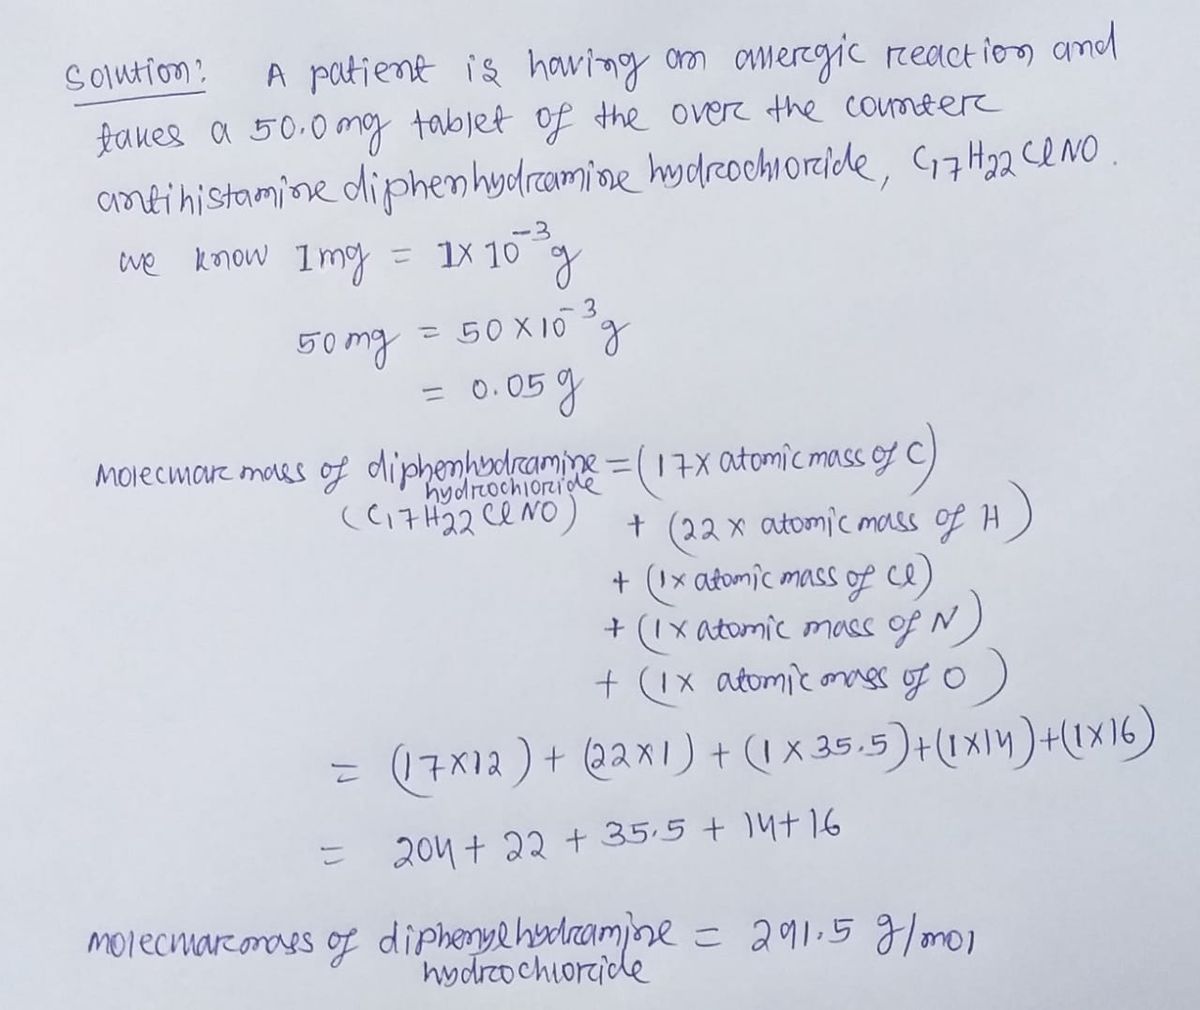 Solution: A patient is having an allergic reaction and
takes a 50.0 mg tablet of the over the counter
antihistamine diphenhydramine hydrochloride, C₁₇H₂₂ClNO.
we know 1mg = 1×10⁻³g
50mg = 50×10⁻³g
= 0.05g
Molecular mass of diphenhydramine = (17× atomic mass of C)
hydrochloride
(C₁₇H₂₂ClNO) + (22 × atomic mass of H)
+ (1× atomic mass of Cl)
+ (1× atomic mass of N)
+ (1× atomic mass of O)
= (17×12) + (22×1) + (1×35.5)+(1×14)+(1×16)
= 204 + 22 + 35.5 + 14+16
Molecular mass of diphenylhydramine = 291.5 g/mol
hydrochloride